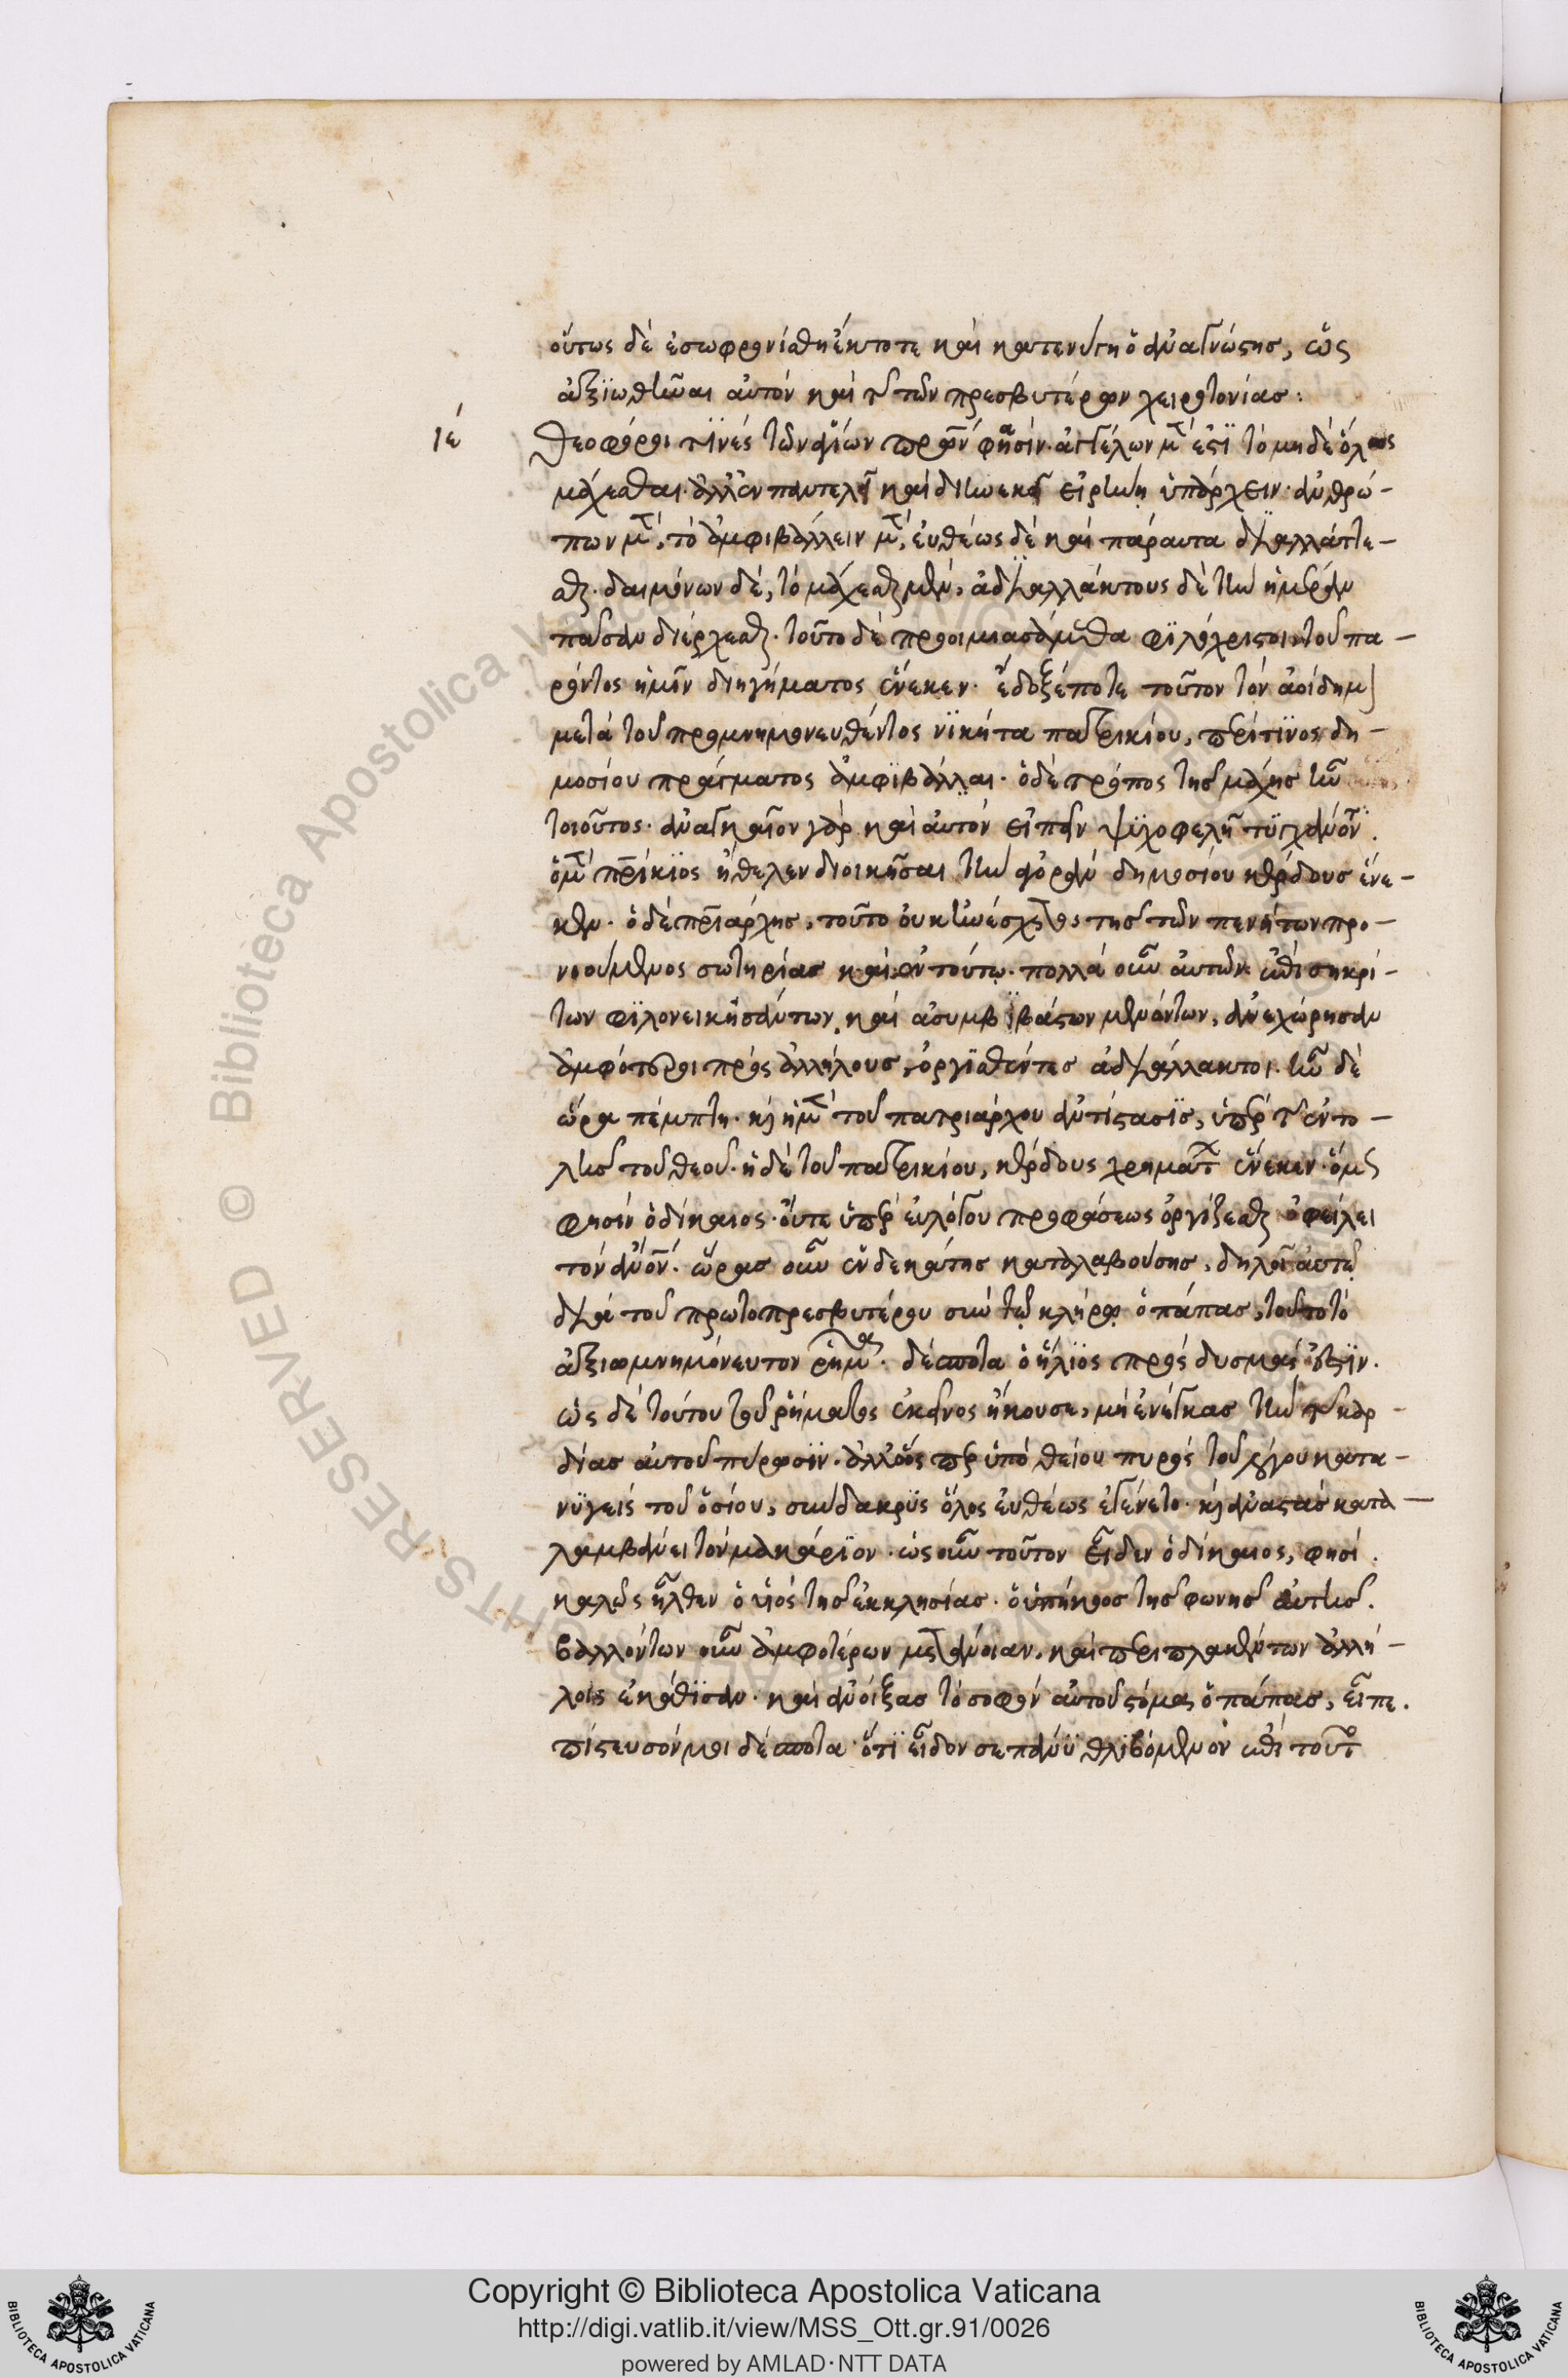 οὕτως δὲ ἐσωφρονίσθη ἔκτοτε καὶ κατενύγη ὁ ἀναγνώστης, ὥς
ἀξϊωθῆναι αὐτὸν καὶ τῆς τῶν πρεσβυτέρων χειροτονίας:
ιέ
Θεοφόροι τϊνὲς τῶν ἁγίων πρων φησίν. ἀγγέλων μ ἐστϊ τὸ μηδὲ ὅλως
μάχεσθαι. ἀλλ' ἐν παντελεῖ καὶ διηνεκεῖ εἰρήνῃ ὑπάρχειν. ἀνθρώ-
πων μ, τὸ ἀμφιβάλλειν μ, εὐθέως δὲ καὶ πάραυτα διαλλάττε-
σθαι. δαιμόνων δὲ, τὸ μάχεσθαι μὲν, ἀδιαλλάκτους δὲ τὴν ἡμέραν
πᾶσαν διέρχεσθαι. τοῦτο δὲ προοιμιασάμεθα φϊλόχριστοι τοῦ πα-
ρόντος ἡμῖν διηγήματος ἕνεκεν. ἔδοξέ ποτε τοῦτον τὸν ἀοίδημ
μετὰ τοῦ προμνημονευθέντος νϊκήτα πατρικίου, περί τϊνος δη-
μοσίου πράγματος ἀμφϊβάλλαι. ὁ δὲ τρόπος τῆς μάχης ἦν
τοιοῦτος. ἀναγκαῖον γὰρ καὶ αὐτὸν εἰπεῖν ψϋχοφελῆ τϋγχάνον.
ὁ μ πρίκϊος ἤθελεν διοικῆσαι τὴν ἀγορὰν δημοσίου κέρδους ἕνε-
κεν. ὁ δὲ πριάρχης, τοῦτο οὐκ ἠνέσχετο τῆς τῶν πενήτων προ-
νοούμενος σωτηρίας καὶ ἐν τούτῳ. πολλὰ οὖν αὐτῶν ἐπὶ σηκρί-
των φϊλονεικησάντων, καὶ ἀσυμβϊβάστων μενόντων, ἀνεχώρησαν
ἀμφότεροι πρὸς ἀλλήλους, ὀργϊσθέντες ἀδιάλλακτοι. ἦν δὲ
ὥρα πέμπτη. καὶ ἡ μ τοῦ πατριάρχου ἀντίστασϊς, ὑπὲρ τῆς ἐντο-
λῆς τοῦ θεοῦ. ἡ δὲ τοῦ πατρικίου, κέρδους χρηματ ἕνεκεν. ὅμως
φησὶν ὁ δίκαιος. οὔτε ὑπὲρ εὐλόγου προφάσεως ὀργίζεσθαι ὀφείλει
τὸν ἀνον. ὥρας οὖν ἑνδεκάτης καταλαβούσης, δηλοῖ αὐτῷ
διὰ τοῦ πρωτοπρεσβυτέρου σὺν τῷ κλήρῳ ὁ πάπας, τοῦτο τὸ
ἀξιομνημόνευτον ῥῆμα. δέσποτα ὁ ἥλϊος πρὸς δυσμάς ἐστϊν.
ὡς δὲ τούτου τοῦ ῥήματος ἐκεῖνος ἤκουσε, μὴ ἐνέγκας τὴν τῆς καρ-
δίας αὐτοῦ πύρωσϊν. ἀλλ' ὥσπερ ὑπὸ θείου πυρὸς τοῦ λόγου κατα-
νϋγεὶς τοῦ ὁσίου, σύνδακρϋς ὅλος εὐθέως ἐγένετο. καὶ ἀναστὰς κατα-
λαμβάνει τὸν μακάρϊον. ὡς οὖν τοῦτον εἶδεν ὁ δίκαιος, φησί.
καλῶς ἦλθεν ὁ υἱὸς τῆς ἐκκλησίας. ὁ ὑπήκοος τῆς φωνῆς αὐτῆς.
βαλλόντων οὖν ἀμφοτέρων μετάνοιαν, καὶ περιπλακέντων ἀλλή-
λοις ἐκάθϊσαν. καὶ ἀνοίξας τὸ σοφὸν αὐτοῦ στόμα ὁ πάπας, εἶπε.
πίστευσόν μοι δέσποτα. ὅτϊ εἶδον σε πάνϋ θλϊβόμενον ἐπὶ τουτο